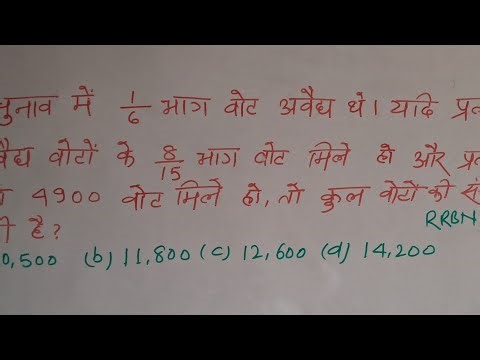 चुनाव में 1/6 भाग वोट अवैध थे। यदि प्र
वैध वोटों के 8/15 भाग वोट मिले हो और प्र
4900 वोट मिले हो, तो कुल वोटों की सं
है?
RRBN
0,500 (b) 11,800 (c) 12,600 (d) 14,200